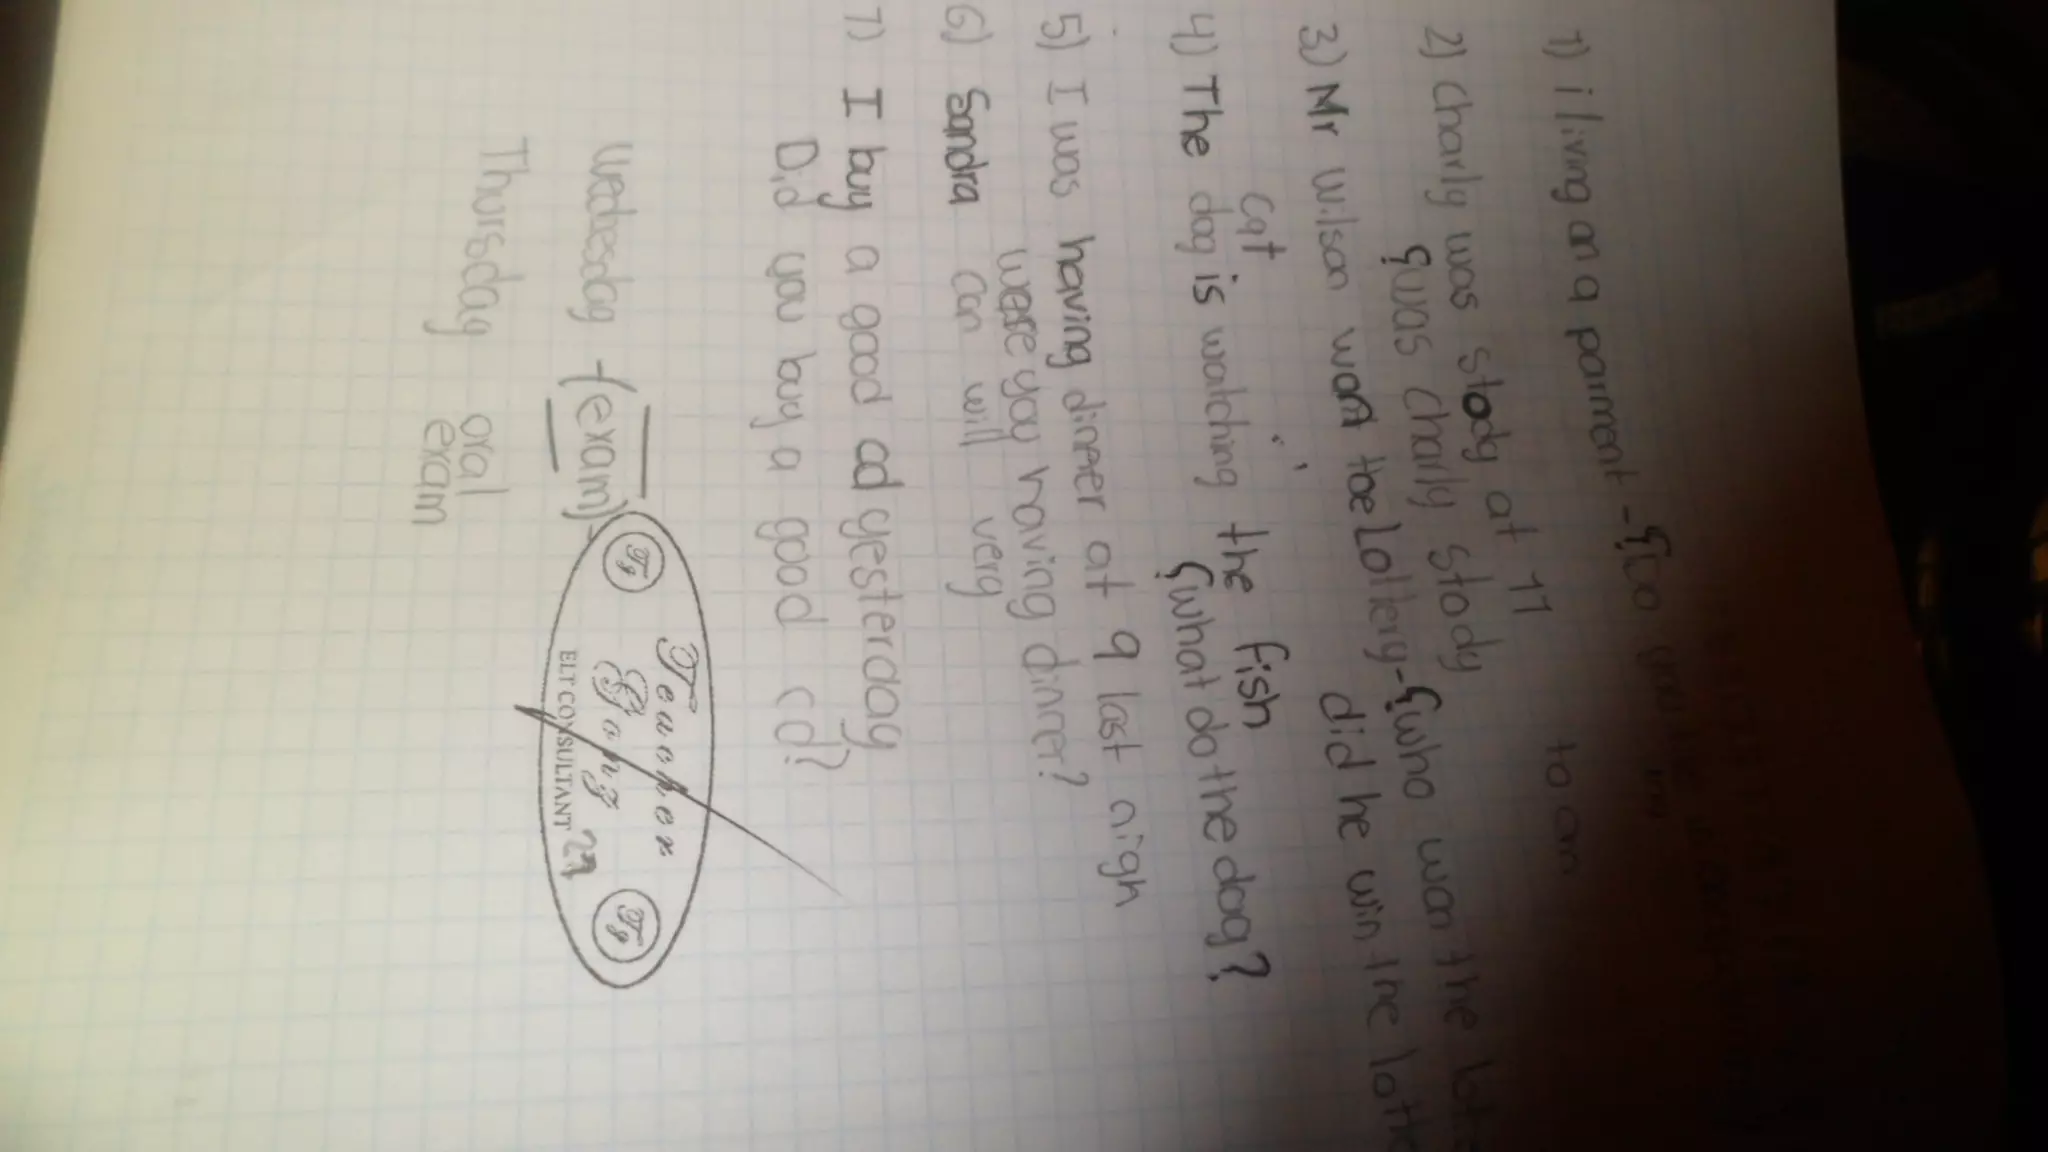 1) i living on a parment - ¿Do you
to am
2) charly was stody at 11
¿was charly stody
3) Mr wilson won the Lottery - ¿who won the
did he win the
cat
4) The dog is watching the fish
¿what do the dog?
5) I was having dinner at 9 last nigh
were you having dinner?
6) Sandra can will very
7) I buy a good cd yesterday
Did you buy a good cd?
Wednesday - (exam)
Thursday oral
exam
Teacher
Gonz
ELT CONSULTANT
Tg
Tg